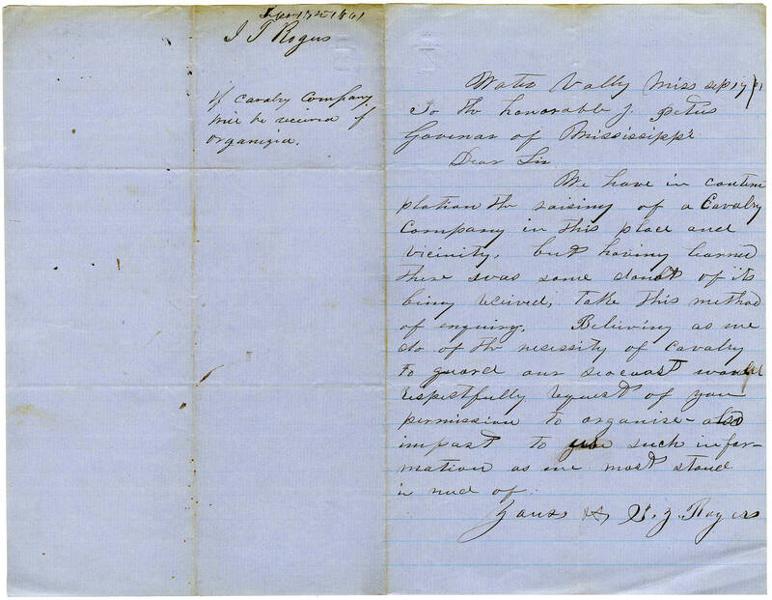 Sept 17th 1861
J T Rogers
If Cavalry Company
will be received if
organized.
Water Vally Miss sep 17/61
To the honorable J. Petus
Govinor of Mississippi
Dear Sir
We have in contem
plation the raising of a Cavalry
Company in this place and
vicinity, but having learned
there was some doubt of its
being received, take this method
of enquiry. Believing as we
do of the necessity of Cavalry
to guard our seacoast would
respectfully request of you
permission to organise - also
impart to you such infor-
mation as we most stand
in need of.
Yours &c Rogers